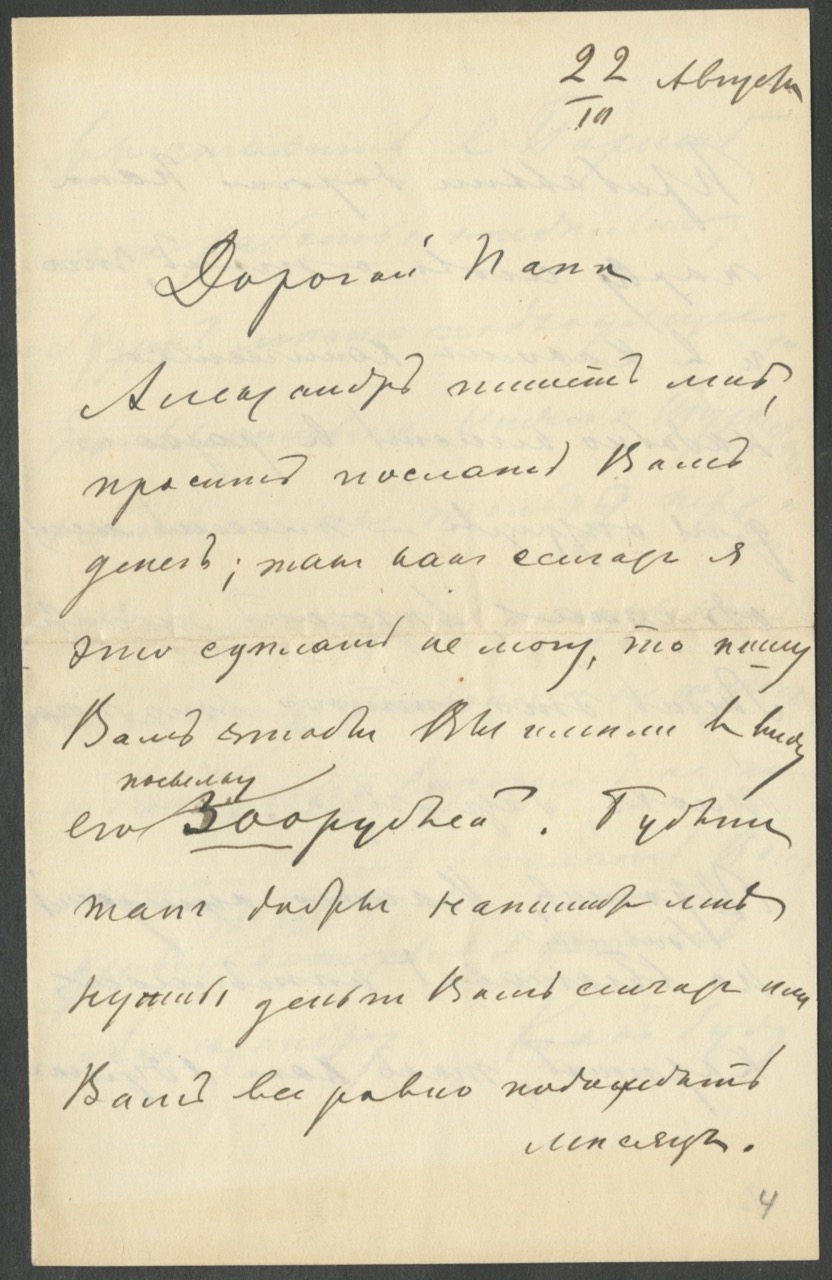 22 Августа
III
Дорогой Папа
Александръ пишетъ мнѣ,
проситъ послать Вамъ
денегъ; такъ какъ сейчасъ я
это сдѣлать не могу, то пишу
Вамъ чтобы Вы имели в виду
посылку
его 300 рублей. Будьте
такъ добры напишите мнѣ
нужны деньги Вамъ сейчасъ или
Вамъ все равно подождать
месяцъ.
4